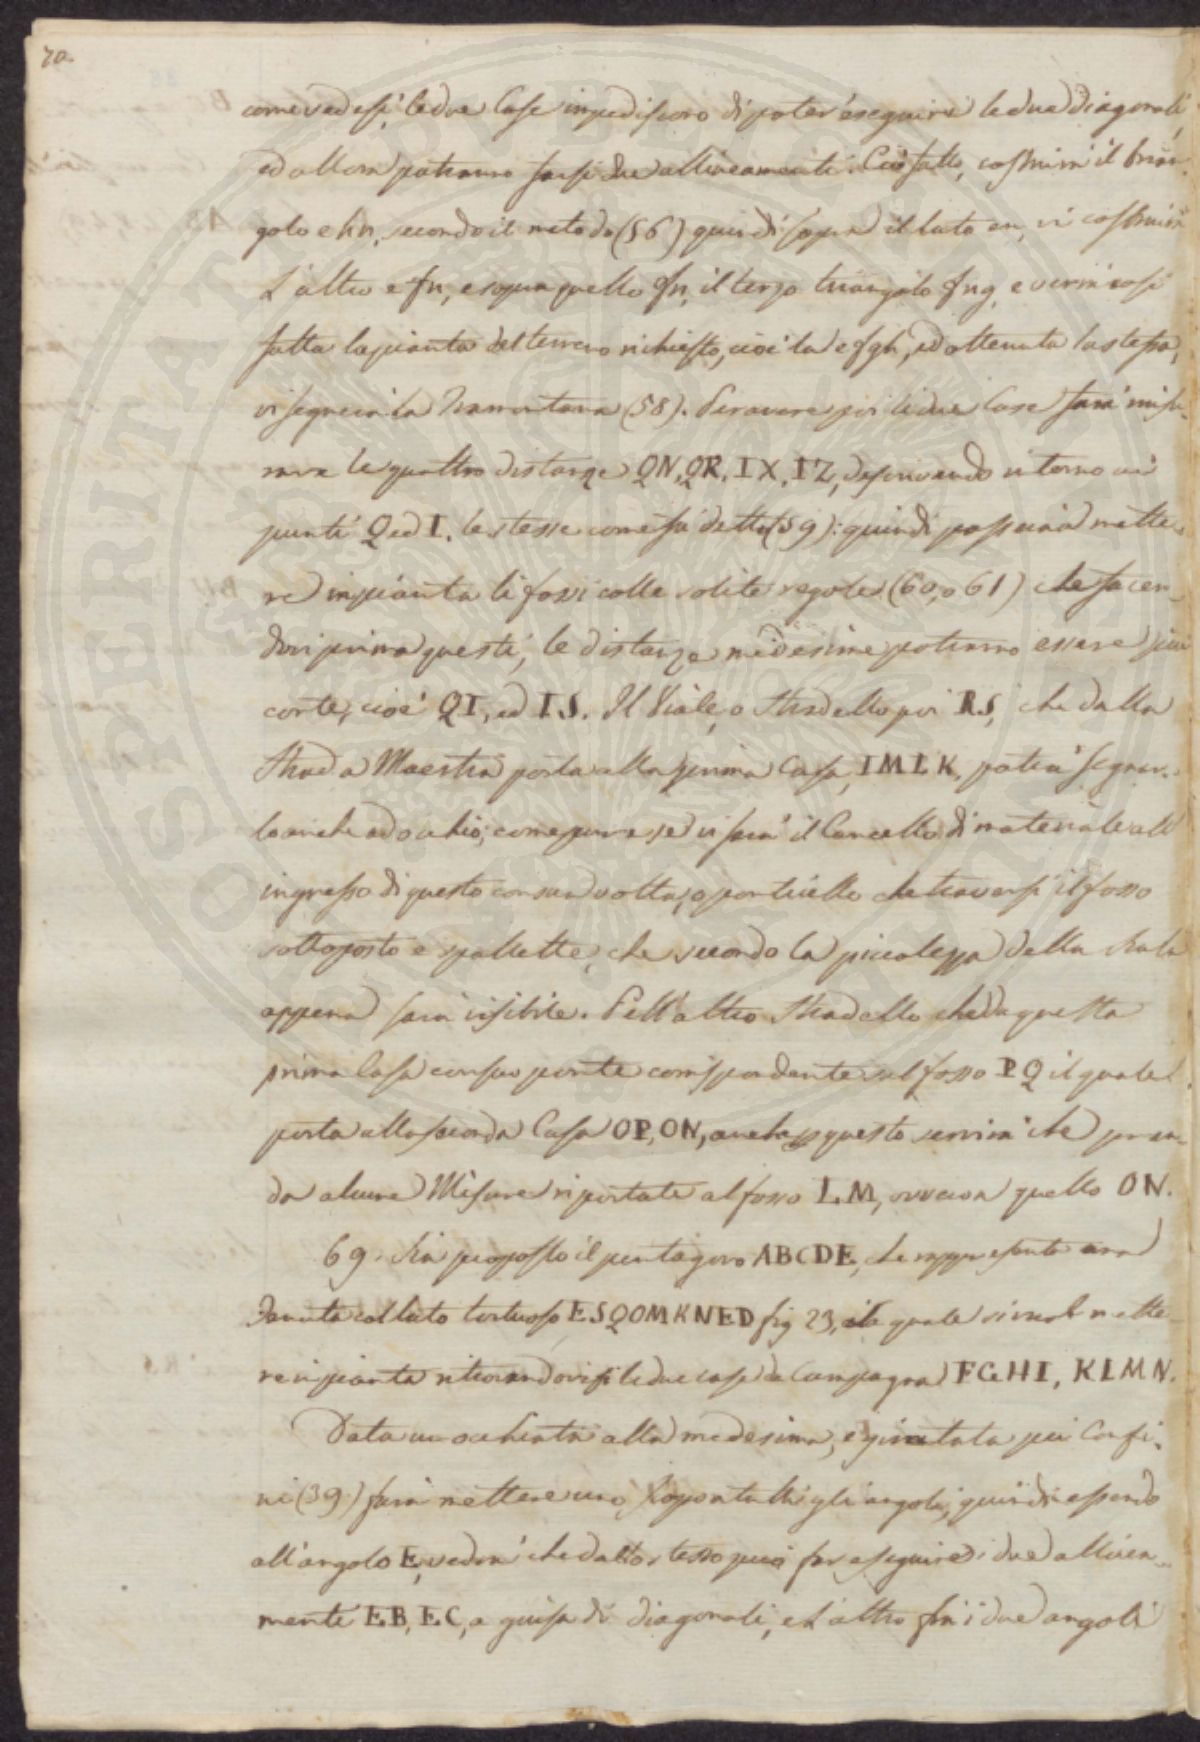 70.
come vedesi, le due Case impediscono di poter eseguire le due diagonali,
ed allora potranno farsi due allineamenti. Ciò fatto, costruirà il trian-
golo ehn, secondo il metodo (56) quindi sopra il lato en, vi costruirà
l'altro efn, e sopra quello fn, il terzo triangolo fng, e verrà così
fatta la pianta del terreno richiesto, cioè la efgh, ed ottenuta la stessa,
vi segnerà la Tramontana (58). Per avere poi le due Case farà misu-
rare le quattro distanze QN, QR, IX, IZ, descrivendo intorno ai
punti Q ed I. le stesse come fu detto (59): quindi passerà a mette-
re in pianta li fossi colle solite regole (60, o 61) che facen-
dosi prima questi, le distanze medesime potranno essere più
corte, cioè QI, ed I.S. Il Viale, o Stradello poi R.S, che dalla
Strada Maestra porta alla prima Casa, IMLK, potrà segnar-
lo anche ad occhio; come pure se vi sarà il Cancello di materiale all'
ingresso di questo con sua volta, o ponticello che traversi il fosso
sottoposto e spallette, che secondo la piccolezza della Scala
appena sarà visibile. Pell'altro Stradello che da questa
prima Casa con suo ponte corrispondente sul fosso PQ il quale
porta alla seconda Casa OP, ON, anche p questo servirà che pren-
da alcune Misure riportate al fosso L.M, ovvero a quello ON.
69. Sia proposto il pentagono ABCDE, che rappresenta una
Tenuta col lato tortuoso ESQOMKNED fig 23, la quale si vuol mette-
re in pianta ritrovandovisi le due case di Campagna FGHI, KLMN.
Data un occhiata alla medesima, e girata tutta pei Confi-
ni (39.) farà mettere uno Scopo a tutti gli angoli, quindi essendo
all'angolo E, vedrà che dallo stesso può far eseguire i due allinea-
mente EB, EC, a guisa di diagonali, e l'altro fra i due angoli